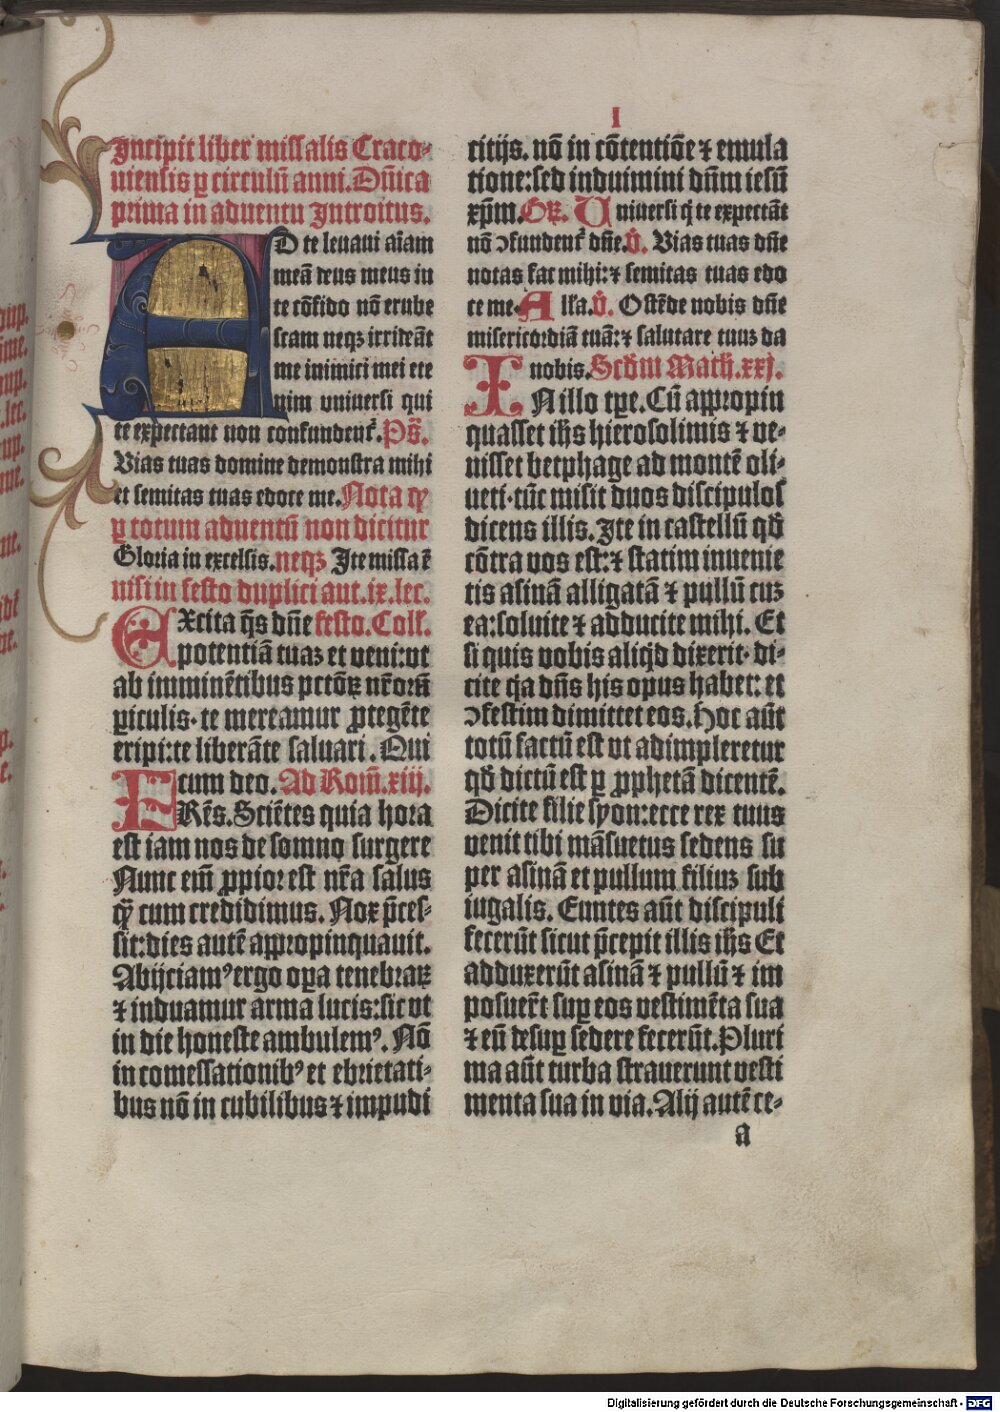 I
Incipit liber missalis Craco-
uiensis ꝑ circulũ anni. Dñica
prima in aduentu Introitus.
AD te leuaui aĩam
meã deus meus in
te cõfido nõ erube
scam neqꝫ irrideãt
me inimici mei ete
nim vniuersi qui
te expectant non confundent᷑. Ps̃.
Vias tuas domine demonstra mihi
et semitas tuas edoce me. Nota qꝫ
ꝑ totum aduentũ non dicitur
Gloria in excelsis. neqꝫ Ite missa ẽ
nisi in festo duplici aut .ix. lec.
EXcita q̃s dñe festo. Coll̃.
potentiã tuaꝫ et veni: vt
ab imminẽtibus pctõꝝ nr̃oꝝ
ꝑiculis· te mereamur ꝓtegẽte
eripi: te liberãte saluari. Qui
cum deo. Ad Rom̃. xiij.
FRẽs. Sciẽtes quia hora
est iam nos de somno surgere
Nunc em̃ ꝓpior est nr̃a salus
qꝫ cum credidimus. Nox p̃ces-
sit: dies autẽ appropinquauit.
Abijciamꝰ ergo oꝑa tenebraꝝ
⁊ induamur arma lucis: sic vt
in die honeste ambulemꝰ. Nõ
in comessationibꝰ et ebrietati-
bus nõ in cubilibus ⁊ impudi
citijs. nõ in cõtentiõe ⁊ emula
tione: sed induimini dñm iesũ
xp̃m. Gꝝ. Vniuersi q̇ te expectãt
nõ ꝯfundent᷑ dñe. V̇. Vias tuas dñe
notas fac mihi: ⁊ semitas tuas edo
ce me. Alla. V̇. Ostẽde nobis dñe
misericordiã tuã: ⁊ salutare tuuꝫ da
nobis. Scd̃m Math. xxj.
IN illo tꝑe. Cũ appropin
quasset ih̃s hierosolimis ⁊ ve-
nisset betphage ad montẽ oli-
ueti· tũc misit duos discipulos
dicens illis. Ite in castellũ qd̃
cõtra vos est: ⁊ statim inuenie
tis asinã alligatã ⁊ pullũ cuꝫ
ea: soluite ⁊ adducite mihi. Et
si quis vobis aliq̇d dixerit· di-
cite q̇a dñs his opus habet: et
ꝯfestim dimittet eos. Hoc aũt
totũ factũ est vt adimpleretur
qd̃ dictũ est ꝑ ꝓphetã dicentẽ.
Dicite filie syon: ecce rex tuus
venit tibi mãsuetus sedens su
per asinã et pullum filiuꝫ sub
iugalis. Euntes aũt discipuli
fecerũt sicut p̃cepit illis ih̃s Et
adduxerũt asinã ⁊ pullũ ⁊ im
posuer̃t suꝑ eos vestimẽta sua
⁊ eũ desuꝑ sedere fecerũt. Pluri
ma aũt turba strauerunt vesti
menta sua in via. Alij autẽ ce-
a
Digitalisierung gefördert durch die Deutsche Forschungsgemeinschaft - DFG